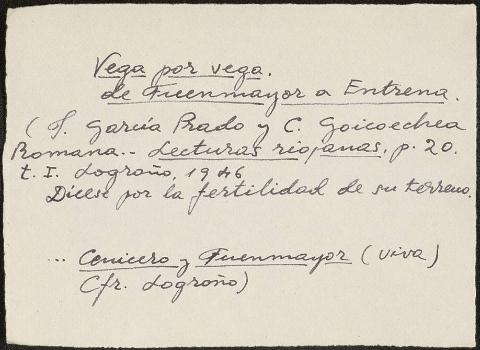 Vega por vega.
de Fuenmayor a Entrena.
(J. García Prado y C. Goicoechea
Romana.- Lecturas riojanas, p. 20.
t. I. Logroño, 1946
Dícese por la fertilidad de su terreno.
... Cenicero y Fuenmayor (viva)
Cfr. Logroño)